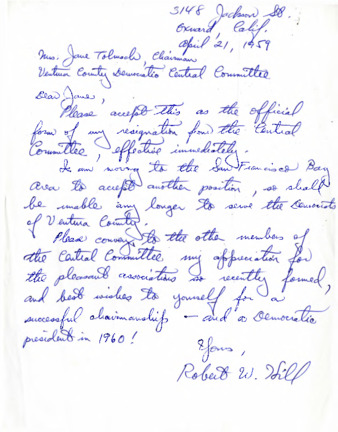 5148 Jackson St.
Oxnard, Calif.
April 21, 1959
Mrs. Jane Tolmach, Chairman
Ventura County Democratic Central Committee
Dear Jane,
Please accept this as the official
form of my resignation from the Central
Committee, effective immediately.
I am moving to the San Francisco Bay
Area to accept another position, so shall
be unable any longer to serve the Democrats
of Ventura County.
Please convey to the other members of
the Central Committee my appreciation for
the pleasant associations so recently formed,
and best wishes to yourself for a
successful chairmanship — and a Democratic
president in 1960!
Yours,
Robert W. Hill